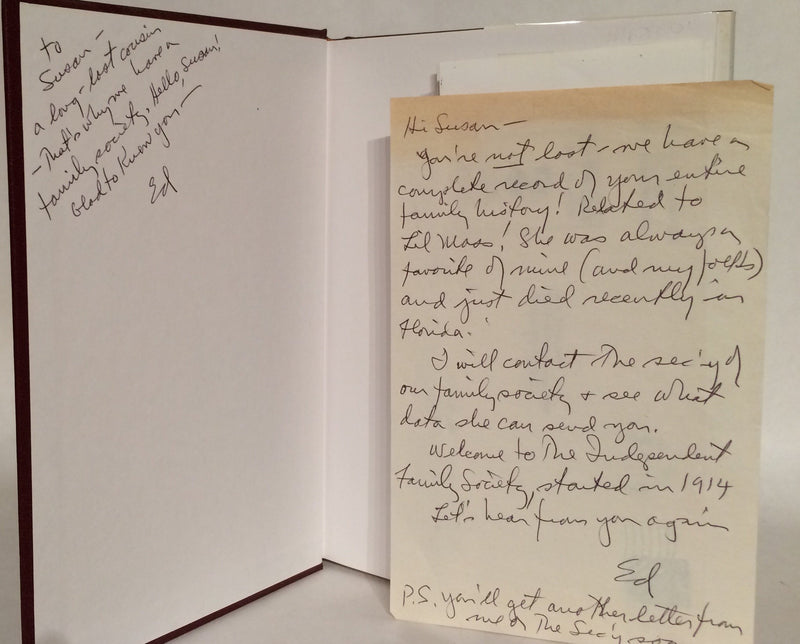 to
Susan -
a long-lost cousin
- That's why we have a
family society. Hello, Susan!
Glad to know you -
Ed
Hi Susan -
You're not lost - we have a
complete record of your entire
family history! Related to
Lil Moss! She was always a
favorite of mine (and my folks)
and just died recently in
Florida.
I will contact the sec'y of
our family society + see what
data she can send you.
Welcome to The Independent
Family Society, started in 1914
Let's hear from you again
Ed
P.S. You'll get another letter from
me or The Sec'y soon